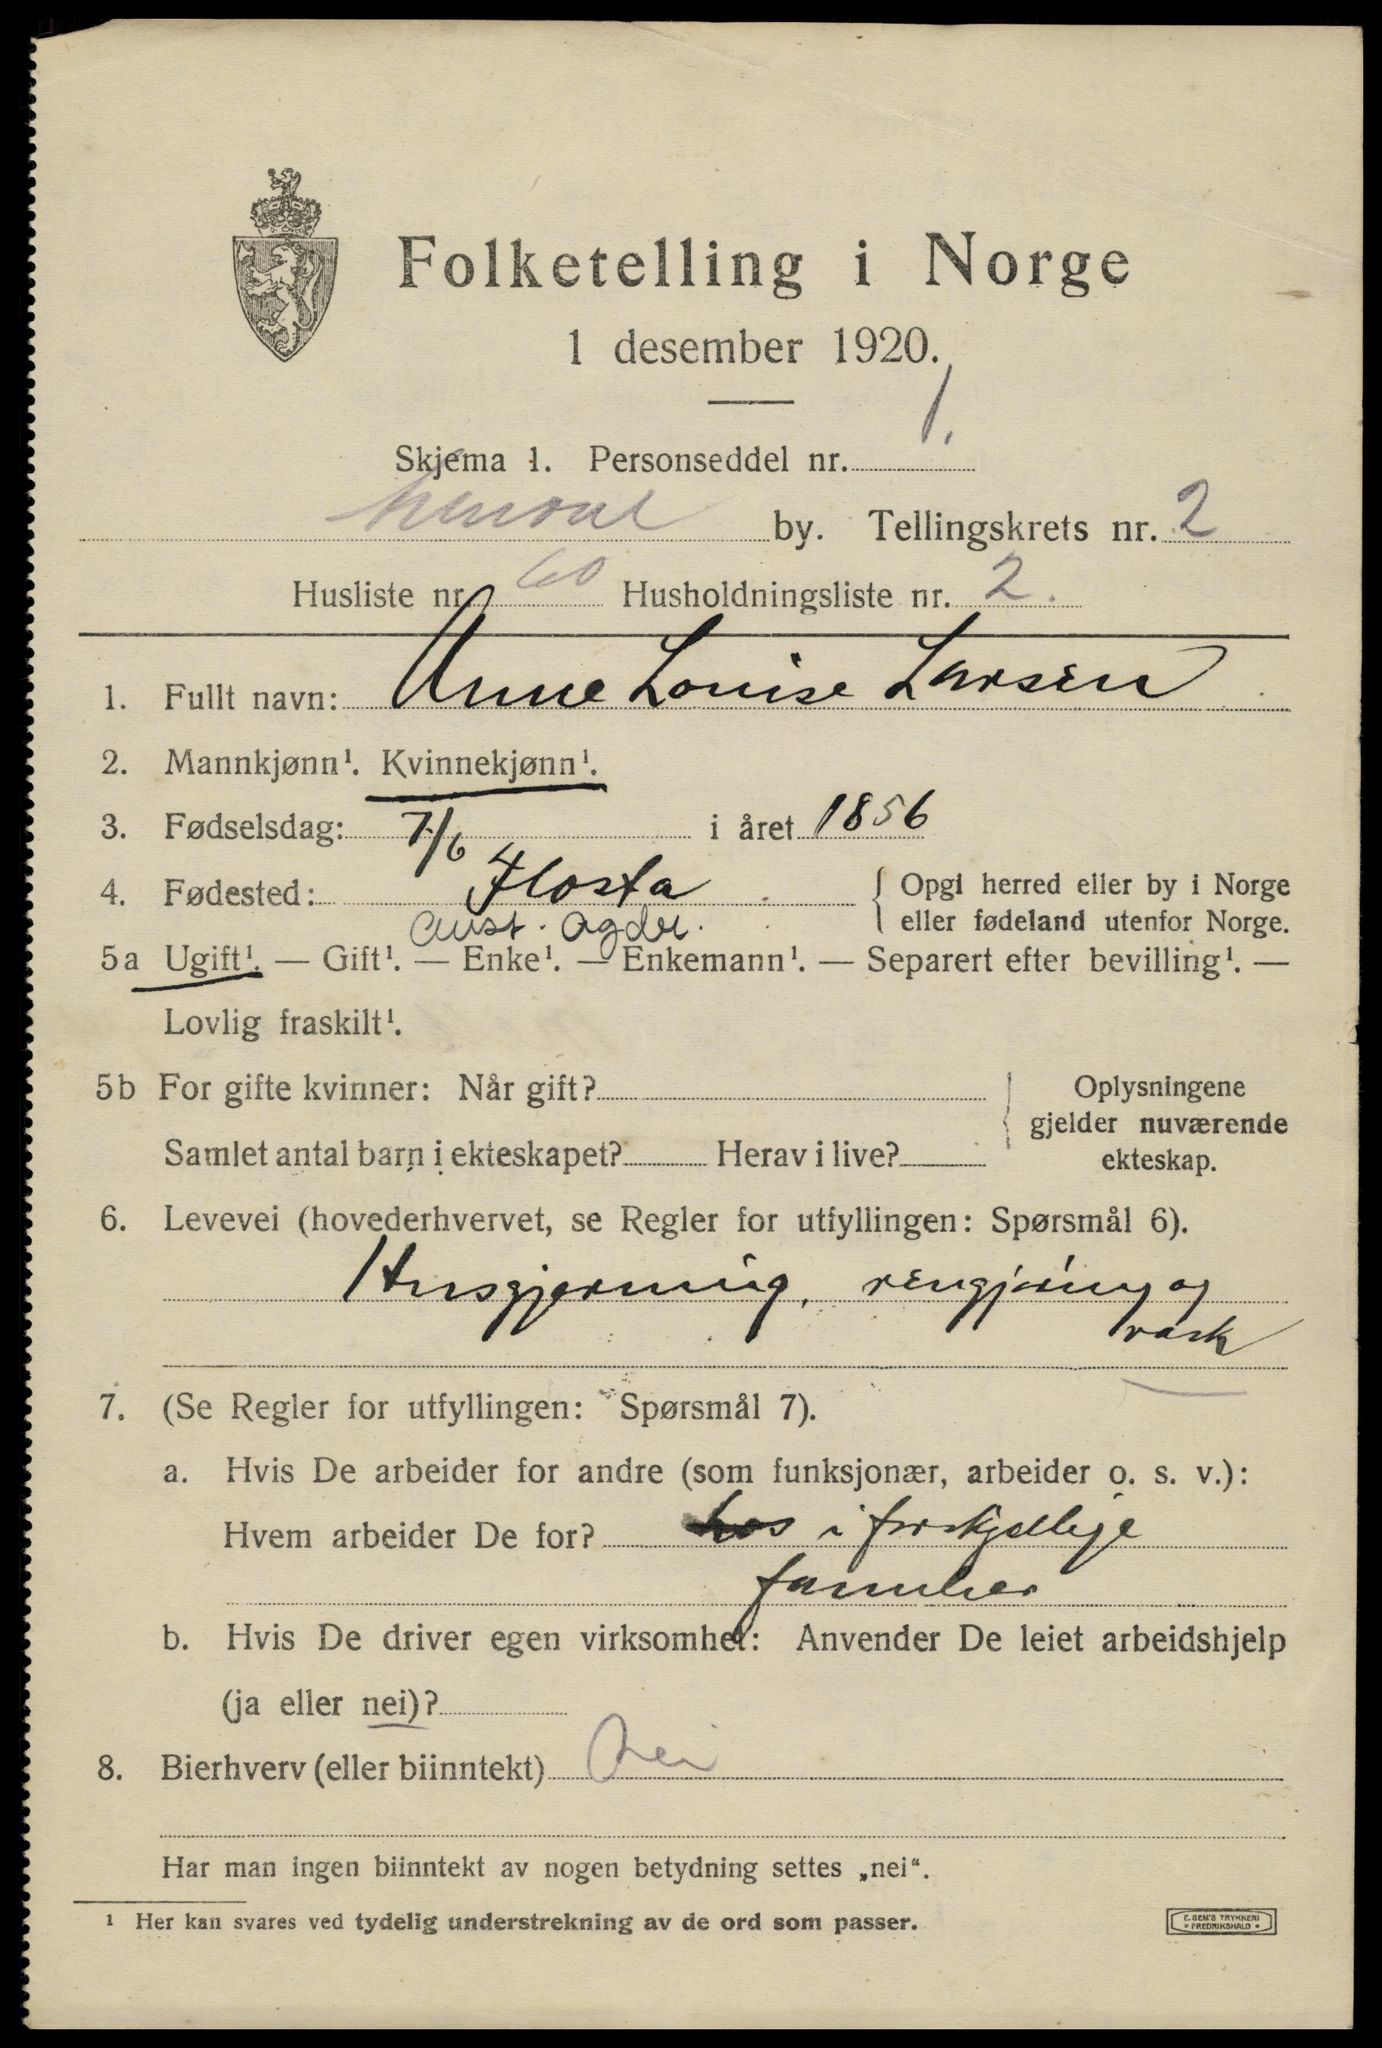 Folketelling i Norge
1 desember 1920.
Skjema 1. Personseddel nr. 1.
Arendal by. Tellingskrets nr. 2
Husliste nr. 60 Husholdningsliste nr. 2.
1. Fullt navn: Anne Louise Larsen
2. Mannkjønn¹. Kvinnekjønn¹.
3. Fødselsdag: 7/6 i året 1856
4. Fødested: Flosta { Opgi herred eller by i Norge
eller fødeland utenfor Norge.
Aust. Agder.
5a Ugift¹. — Gift¹. — Enke¹. — Enkemann¹. — Separert efter bevilling¹. —
Lovlig fraskilt¹.
5b For gifte kvinner: Når gift? { Oplysningene
gjelder nuværende
Samlet antal barn i ekteskapet? Herav i live? ekteskap.
6. Levevei (hovederhvervet, se Regler for utfyllingen: Spørsmål 6).
Husgjerning, rengjøring og
vask
7. (Se Regler for utfyllingen: Spørsmål 7).
a. Hvis De arbeider for andre (som funksjonær, arbeider o. s. v.):
Hvem arbeider De for? hos i forskjellige
familier
b. Hvis De driver egen virksomhet: Anvender De leiet arbeidshjelp
(ja eller nei)?
8. Bierhverv (eller biinntekt) Nei
Har man ingen biinntekt av nogen betydning settes „nei“.
¹ Her kan svares ved tydelig understrekning av de ord som passer.
E. SEM'S TRYKKERI
• FREDRIKSHALD •